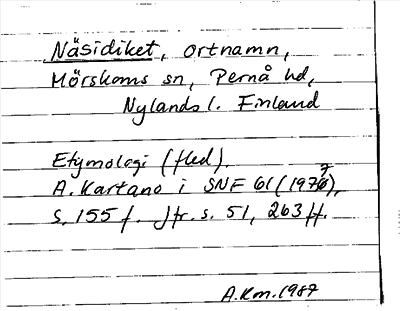 Näsidiket, ortnamn,
Mörskoms sn, Pernå hd,
Nylands l. Finland
Etymologi (fled).
A. Kartano i SNF 61 (1977),
s. 155 f. Jfr. s. 51, 263 ff.
A.Km. 1987